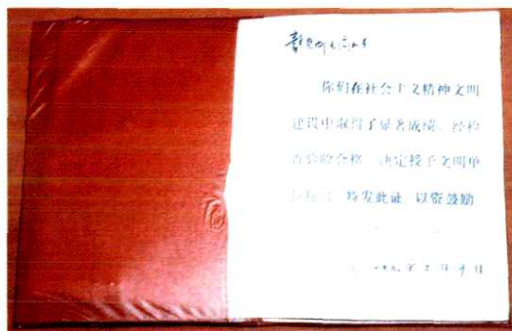 你们在社会主义精神文明
建设中取得了显著成绩，经检
查验收合格，决定授予文明单
特发此证，以资鼓励
年 月 日